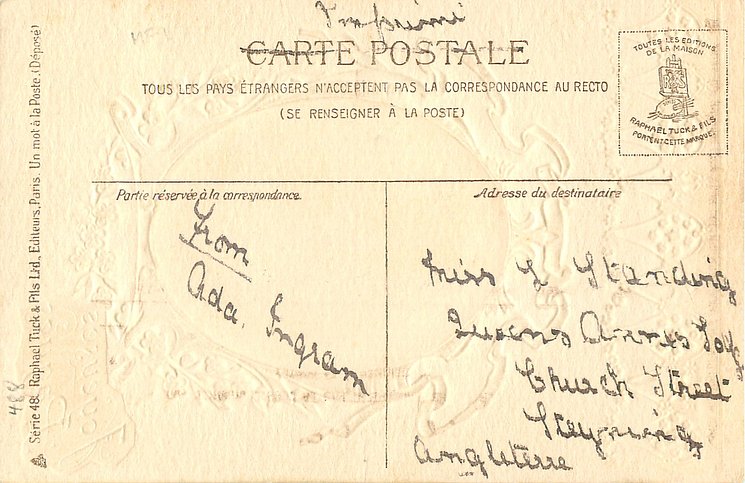 Imprimé
CARTE POSTALE
TOUS LES PAYS ÉTRANGERS N'ACCEPTENT PAS LA CORRESPONDANCE AU RECTO
(SE RENSEIGNER À LA POSTE)
TOUTES LES EDITIONS
DE LA MAISON
RAPHAEL TUCK & FILS
PORTENT CETTE MARQUE
Partie réservée à la correspondance.
From
Ada. Ingram
Adresse du destinataire
Miss L Standing
Queens Annes
Church Street
Steyning
Angleterre
Série 48. Raphael Tuck & Fils Ltd., Editeurs, Paris. Un mot à la Poste. (Déposé)
488